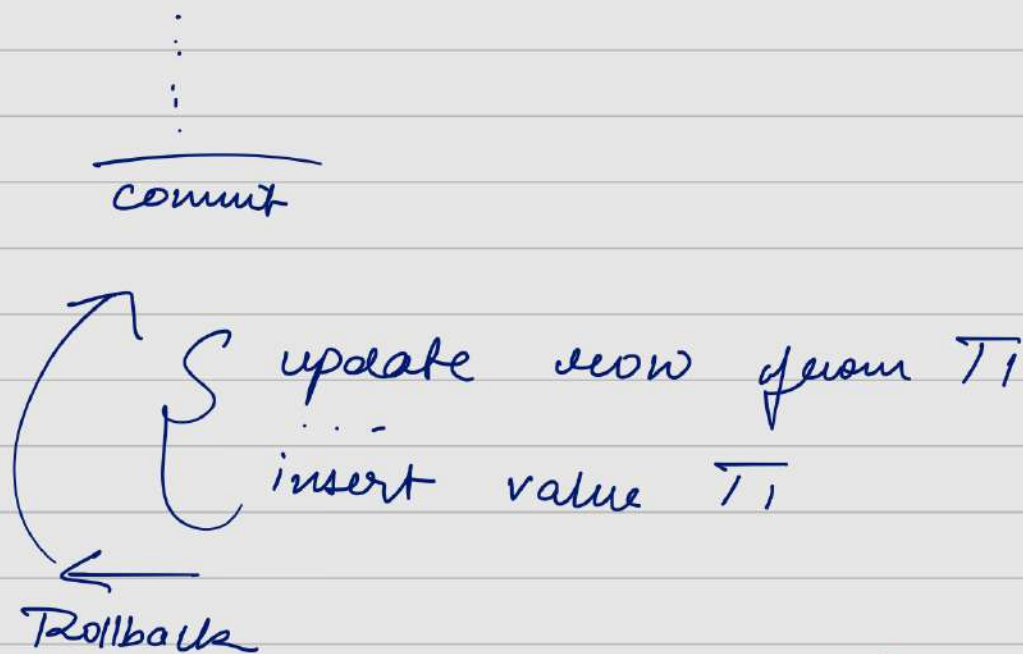 commit
update row from T1
...
insert value T1
Rollback